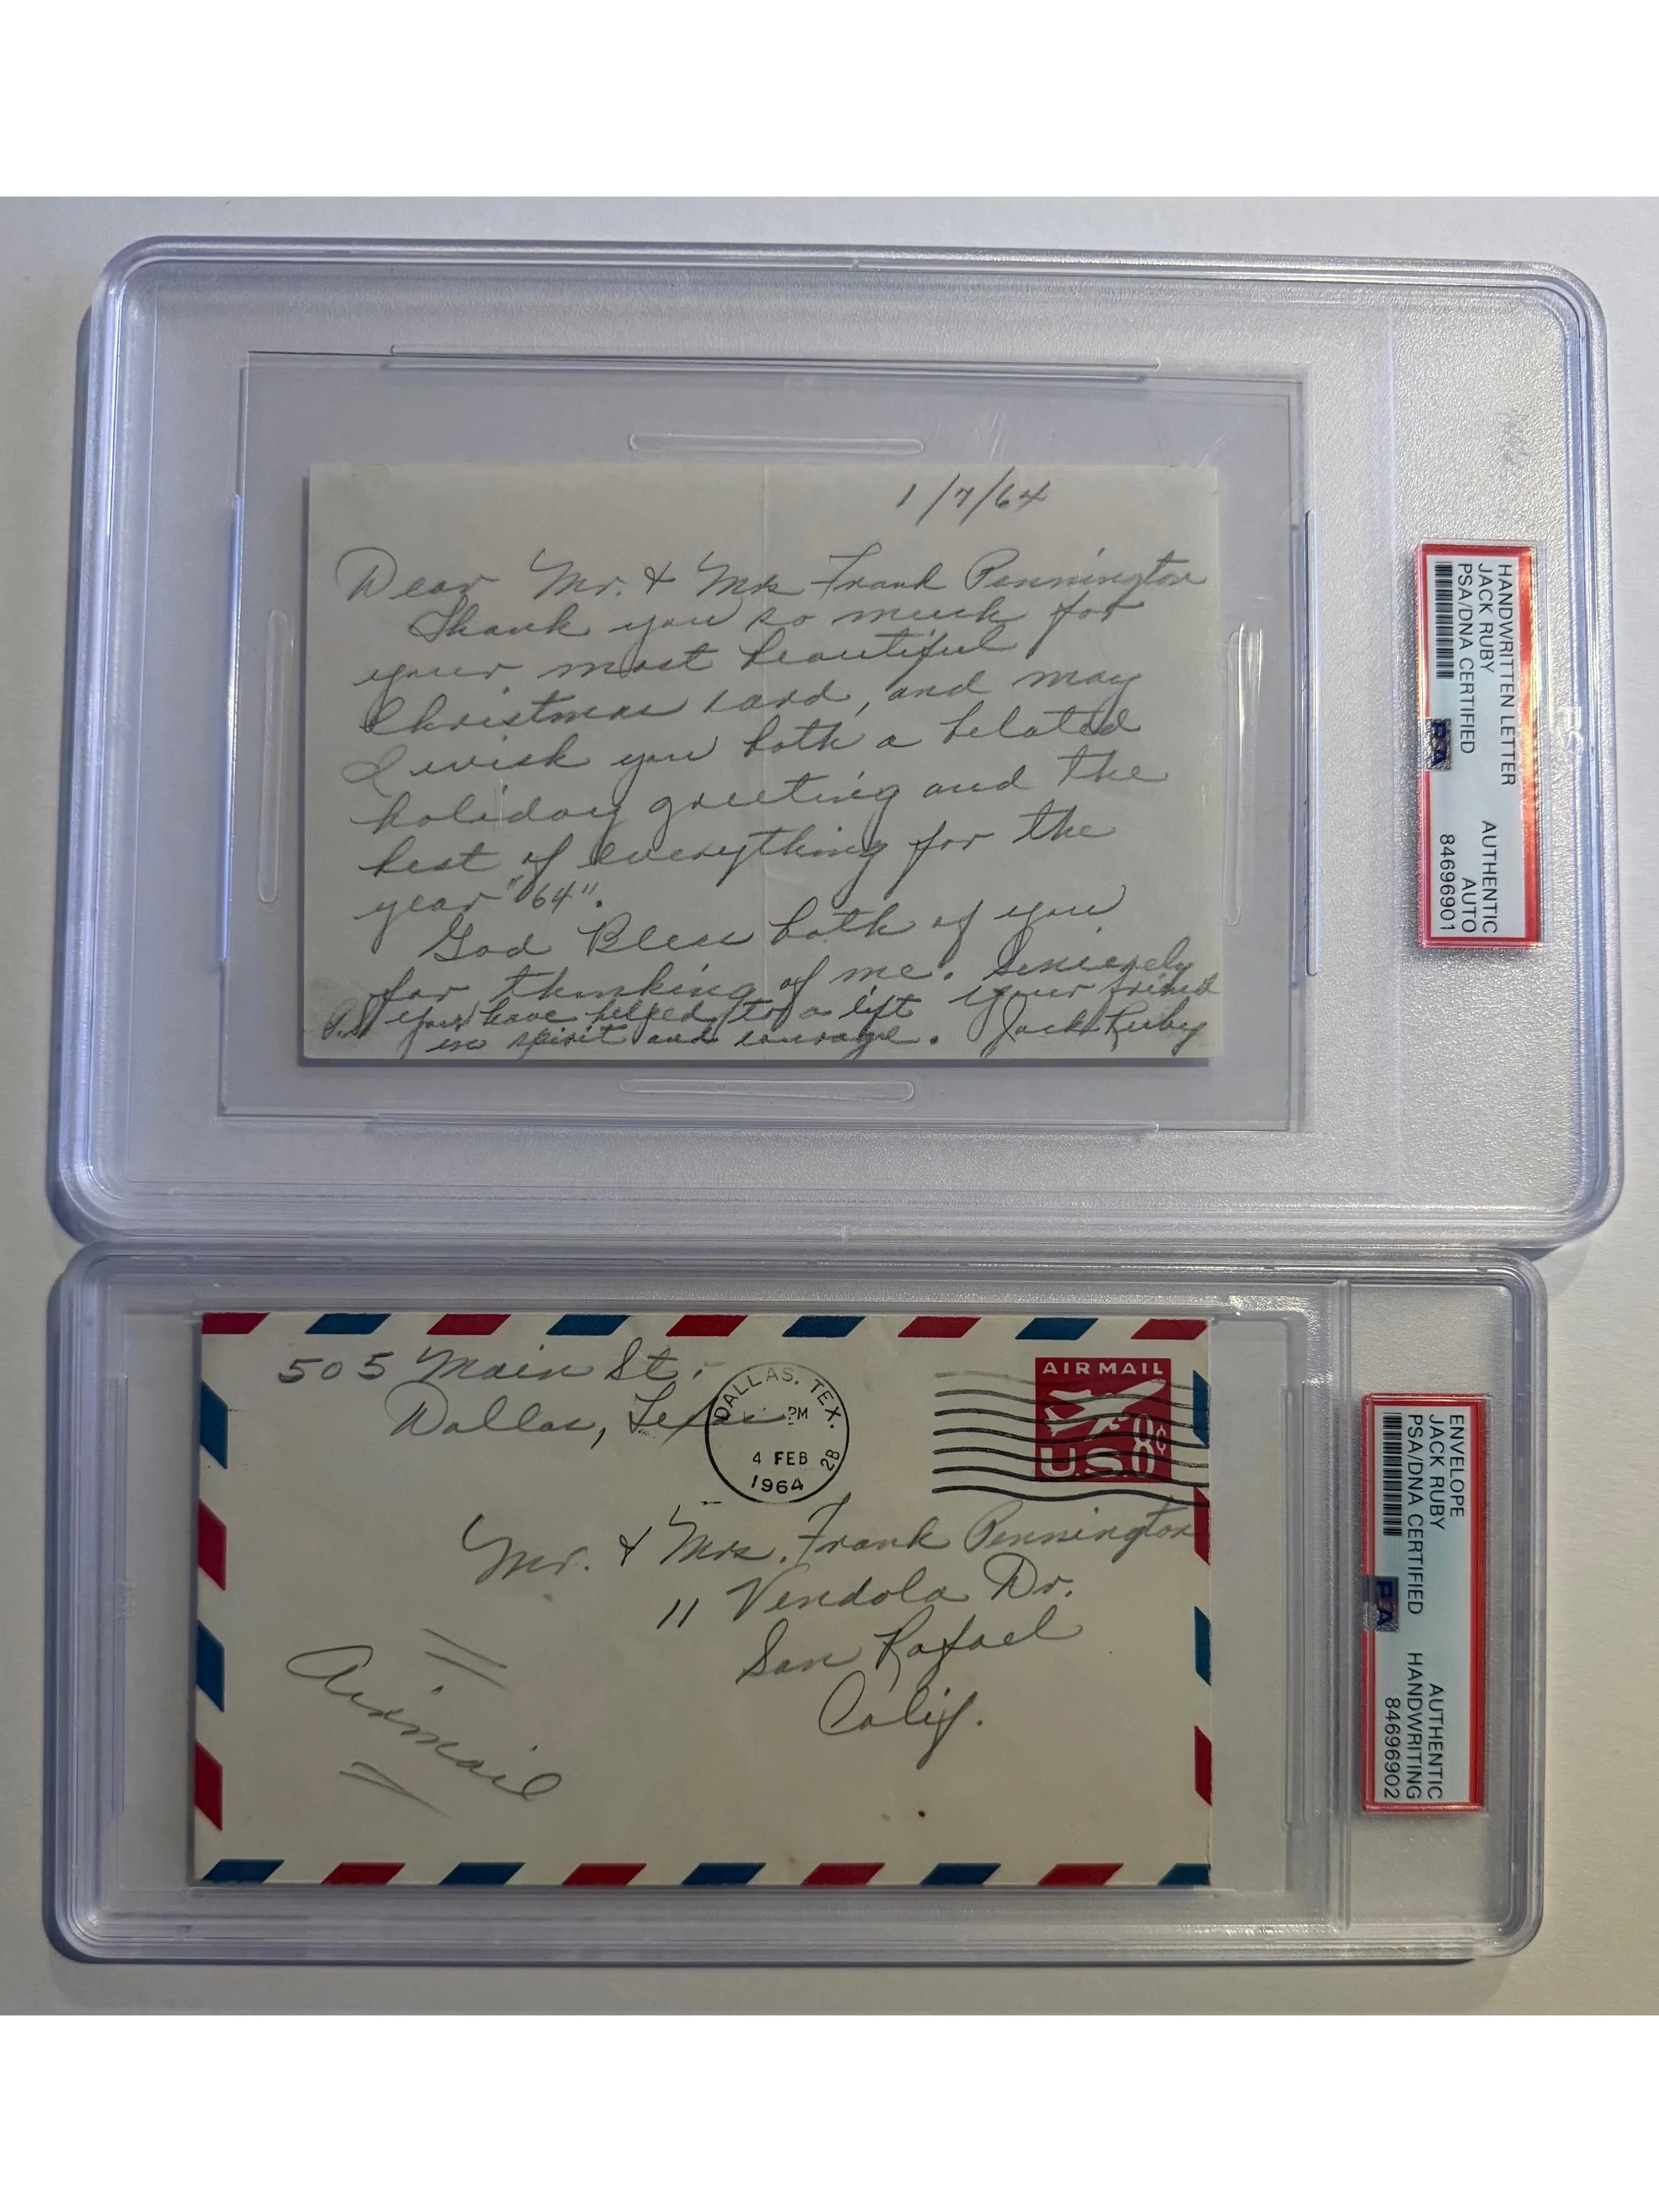 1/7/64
Dear Mr. & Mrs Frank Pennington
Thank you so much for
your most beautiful
Christmas card, and may
I wish you both a belated
holiday greeting and the
best of everything for the
year "64".
God Bless both of you
for thinking of me. Sincerely
your friend
Jack Ruby
P.S. you have helped to a lift
in spirit and courage.
HANDWRITTEN LETTER
JACK RUBY
PSA/DNA CERTIFIED
AUTHENTIC
AUTO
84696901
PSA
505 Main St.
Dallas, Texas
DALLAS, TEX.
PM
4 FEB
1964
2B
AIR MAIL
U.S. 8¢
Mr. & Mrs. Frank Pennington
11 Vendola Dr.
San Rafael
Calif.
Airmail
ENVELOPE
JACK RUBY
PSA/DNA CERTIFIED
AUTHENTIC
HANDWRITING
84696902
PSA